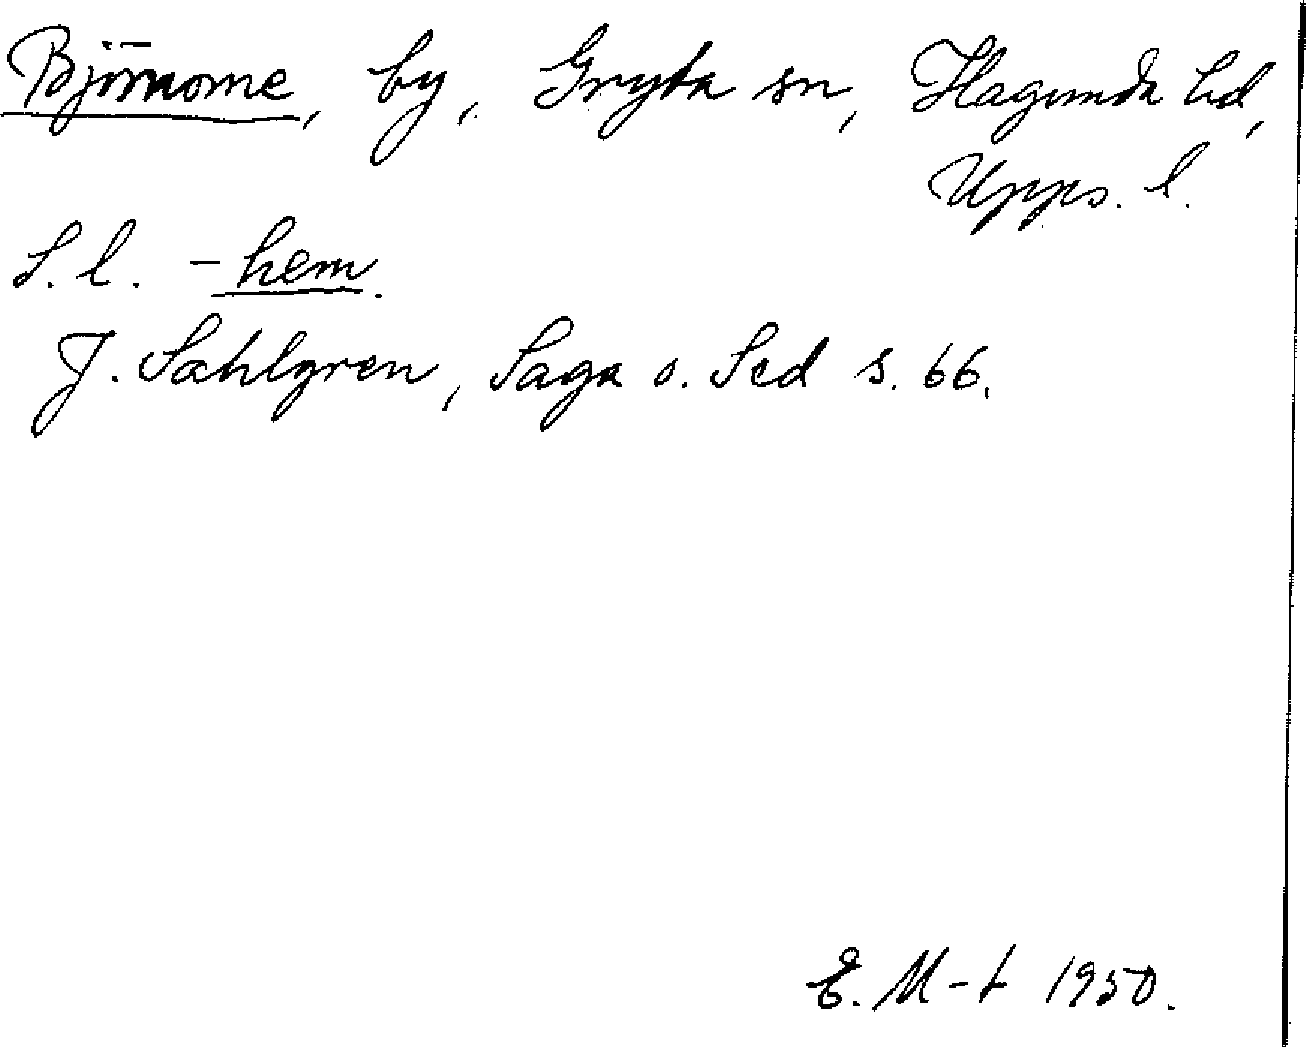 Björnome, by, Gryta sn, Hagunda hd,
Upps. l.
S. l. -hem.
J. Sahlgren, Saga o. Sed s. 66.
E. M-t 1950.